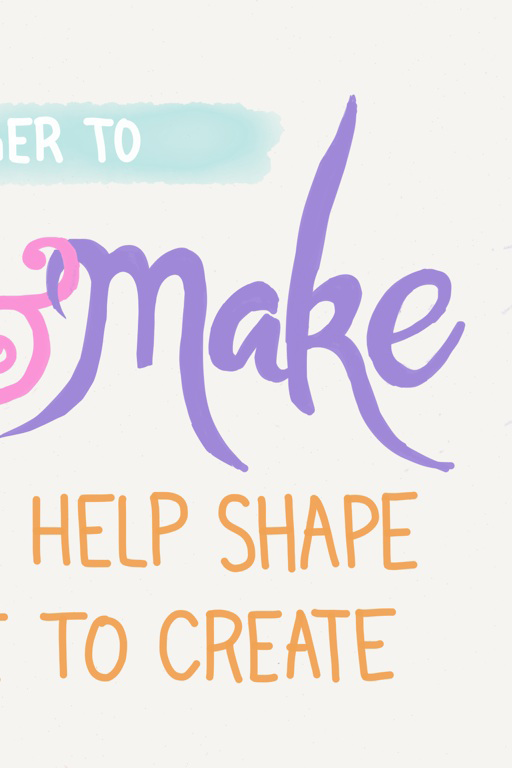 TO
make
HELP SHAPE
TO CREATE